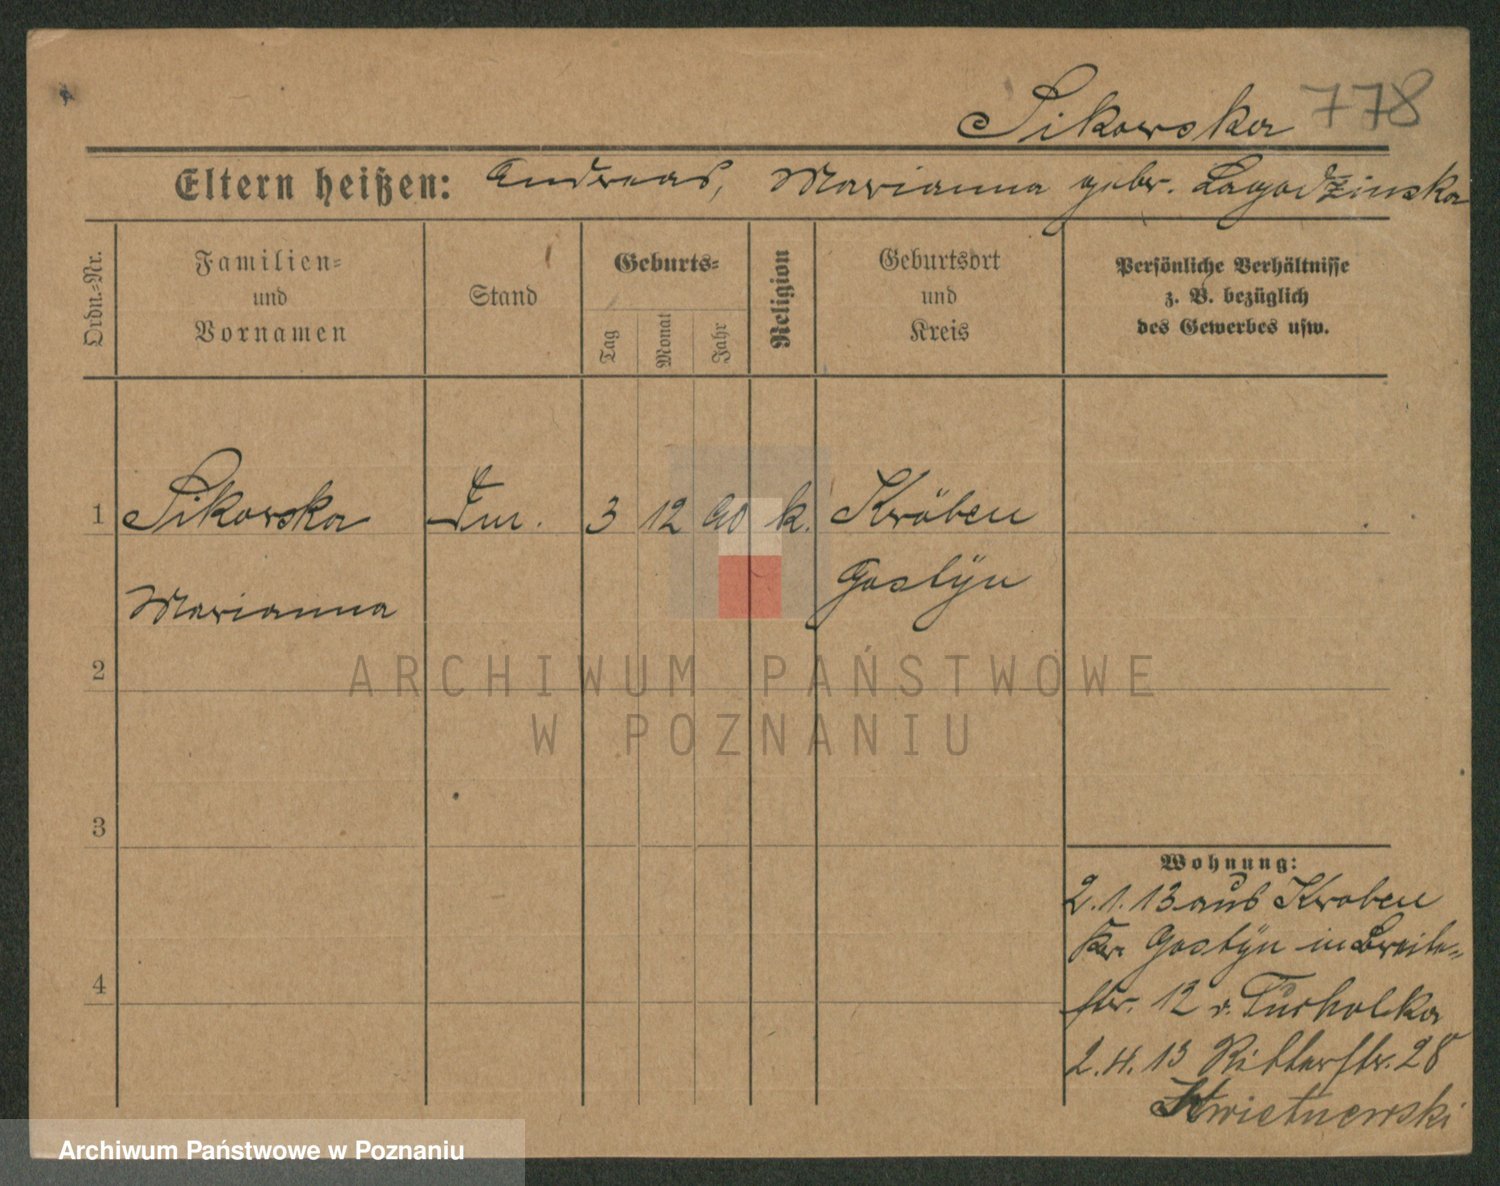 Sikowska 778
Eltern heißen: Andreas, Marianna gebr. Lagodzinska
Ordn.-Nr.
Familien-
und
Vornamen
Stand
Geburts-
Tag
Monat
Jahr
Religion
Geburtsort
und
Kreis
Persönliche Verhältnisse
z. B. bezüglich
des Gewerbes usw.
1 Sikowska 3 12 90 k. Kröben
Marianna Gostÿn
2
3
4
Wohnung:
2.1.13 aus Kroben
Kr. Gostÿn in Breite-
str. 12 v. Tucholka
2.4.13 Ritterstr. 28
Kwietnewski
ARCHIWUM PAŃSTWOWE
W POZNANIU
Archiwum Państwowe w Poznaniu